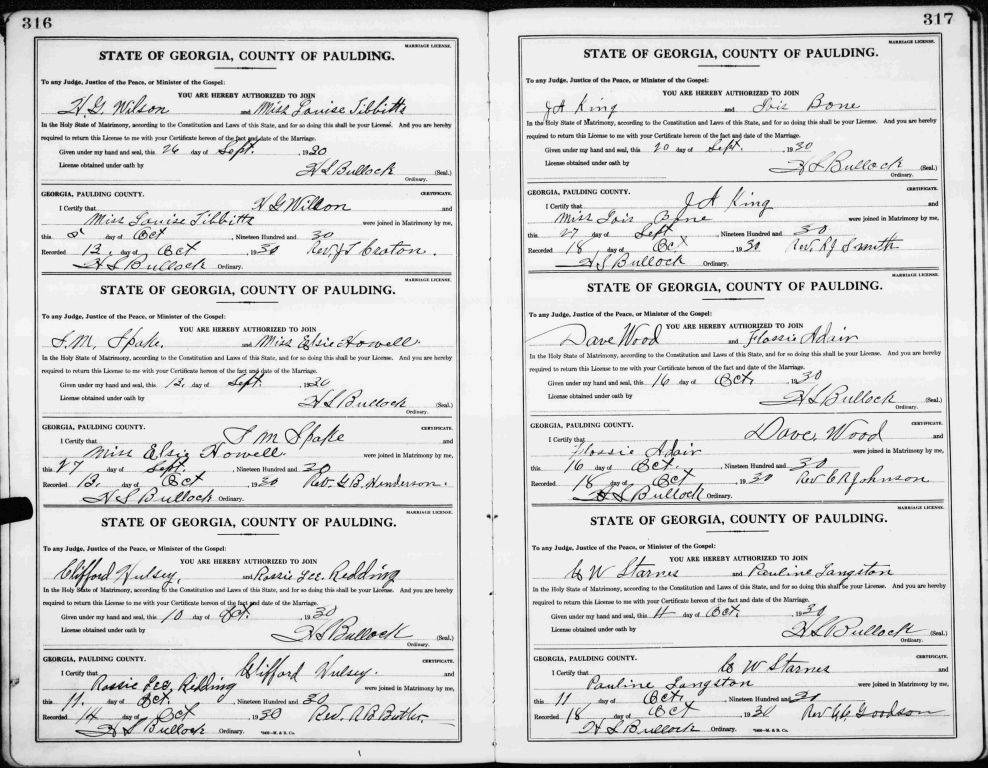 316
MARRIAGE LICENSE.
STATE OF GEORGIA, COUNTY OF PAULDING.
To any Judge, Justice of the Peace, or Minister of the Gospel:
YOU ARE HEREBY AUTHORIZED TO JOIN
H. G. Wilson and Miss Louise Tibbitts
In the Holy State of Matrimony, according to the Constitution and Laws of this State, and for so doing this shall be your License. And you are hereby
required to return this License to me with your Certificate hereon of the fact and date of the Marriage.
Given under my hand and seal, this 26 day of Sept. 1930
License obtained under oath by H S Bullock (Seal.)
Ordinary.
GEORGIA, PAULDING COUNTY. CERTIFICATE.
I Certify that H G Wilson and
Miss Louise Tibbitts were joined in Matrimony by me,
this 5 day of Oct, Nineteen Hundred and 30
Recorded 13, day of Oct, 1930 Rev. J T Croton.
H S Bullock Ordinary.
MARRIAGE LICENSE.
STATE OF GEORGIA, COUNTY OF PAULDING.
To any Judge, Justice of the Peace, or Minister of the Gospel:
YOU ARE HEREBY AUTHORIZED TO JOIN
T. M. Spake. and Miss Elsie Howell
In the Holy State of Matrimony, according to the Constitution and Laws of this State, and for so doing this shall be your License. And you are hereby
required to return this License to me with your Certificate hereon of the fact and date of the Marriage.
Given under my hand and seal, this 13, day of Sept. 1930
License obtained under oath by H S Bullock (Seal.)
Ordinary.
GEORGIA, PAULDING COUNTY. CERTIFICATE.
I Certify that T M Spake and
Miss Elsie Howell were joined in Matrimony by me,
this 27 day of Sept. Nineteen Hundred and 30
Recorded 13, day of Oct 1930 Rev. G. B. Henderson.
H S Bullock Ordinary.
MARRIAGE LICENSE.
STATE OF GEORGIA, COUNTY OF PAULDING.
To any Judge, Justice of the Peace, or Minister of the Gospel:
YOU ARE HEREBY AUTHORIZED TO JOIN
Clifford Hulsey, and Rossie Lee. Redding
In the Holy State of Matrimony, according to the Constitution and Laws of this State, and for so doing this shall be your License. And you are hereby
required to return this License to me with your Certificate hereon of the fact and date of the Marriage.
Given under my hand and seal, this 10 day of Oct. 1930
License obtained under oath by H S Bullock (Seal.)
Ordinary.
GEORGIA, PAULDING COUNTY. CERTIFICATE.
I Certify that Clifford Hulsey. and
Rossie Lee Redding were joined in Matrimony by me,
this 11. day of Oct. Nineteen Hundred and 30
Recorded 14 day of Oct 1930 Rev. A B Butler
H S Bullock Ordinary. M. & R. Co.
317
MARRIAGE LICENSE.
STATE OF GEORGIA, COUNTY OF PAULDING.
To any Judge, Justice of the Peace, or Minister of the Gospel:
YOU ARE HEREBY AUTHORIZED TO JOIN
J A King and Lois Bone
In the Holy State of Matrimony, according to the Constitution and Laws of this State, and for so doing this shall be your License. And you are hereby
required to return this License to me with your Certificate hereon of the fact and date of the Marriage.
Given under my hand and seal, this 20 day of Sept. 1930
License obtained under oath by H S Bullock (Seal.)
Ordinary.
GEORGIA, PAULDING COUNTY. CERTIFICATE.
I Certify that J A King and
Miss Lois Bone were joined in Matrimony by me,
this 27 day of Sept Nineteen Hundred and 30
Recorded 18 day of Oct 1930 Rev. R J Smith
H S Bullock Ordinary.
MARRIAGE LICENSE.
STATE OF GEORGIA, COUNTY OF PAULDING.
To any Judge, Justice of the Peace, or Minister of the Gospel:
YOU ARE HEREBY AUTHORIZED TO JOIN
Dave Wood and Flossie Adair
In the Holy State of Matrimony, according to the Constitution and Laws of this State, and for so doing this shall be your License. And you are hereby
required to return this License to me with your Certificate hereon of the fact and date of the Marriage.
Given under my hand and seal, this 16 day of Oct. 1930
License obtained under oath by H S Bullock (Seal.)
Ordinary.
GEORGIA, PAULDING COUNTY. CERTIFICATE.
I Certify that Dave Wood and
Flossie Adair were joined in Matrimony by me,
this 16 day of Oct. Nineteen Hundred and 30
Recorded 18 day of Oct 1930 Rev C R Johnson
H S Bullock Ordinary.
MARRIAGE LICENSE.
STATE OF GEORGIA, COUNTY OF PAULDING.
To any Judge, Justice of the Peace, or Minister of the Gospel:
YOU ARE HEREBY AUTHORIZED TO JOIN
W Starnes and Pauline Langston
In the Holy State of Matrimony, according to the Constitution and Laws of this State, and for so doing this shall be your License. And you are hereby
required to return this License to me with your Certificate hereon of the fact and date of the Marriage.
Given under my hand and seal, this 11 day of Oct. 1930
License obtained under oath by H S Bullock (Seal.)
Ordinary.
GEORGIA, PAULDING COUNTY. CERTIFICATE.
I Certify that W Starnes and
Pauline Langston were joined in Matrimony by me,
this 11 day of Oct. Nineteen Hundred and 30
Recorded 18 day of Oct 1930 Rev Goodson
H S Bullock Ordinary. M. & R. Co.